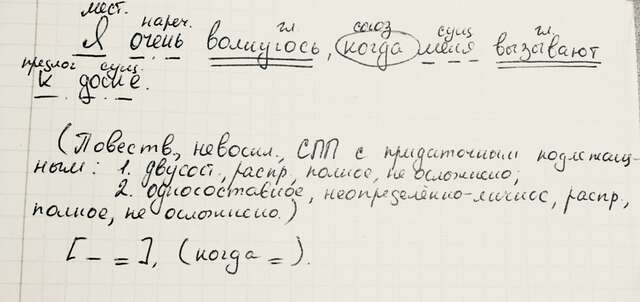 мест. нареч. гл союз сущ гл.
Я очень волнуюсь, когда меня вызывают
предлог сущ.
к доске.
(Повеств, невоскл., СПП с придаточным подлежащ-
ным: 1. двусост., распр, полное, не осложнено;
2. односоставное, неопределённо-личное, распр.,
полное, не осложнено.)
[– =], (когда =).